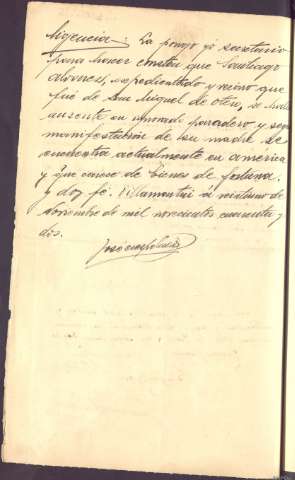 Diligencia. La pongo yo secretario
para hacer constar que Santiago
Alvarez, expedientado y vecino que
fué de San Miguel de Otero, se halla
ausente en ignorado paradero y segun
manifestación de su madre se
encuentra actualmente en américa
y que carece de bienes de fortuna:
y doy fé. Villamontán á veintiuno de
Noviembre de mil novecientos cuarenta y
dos.